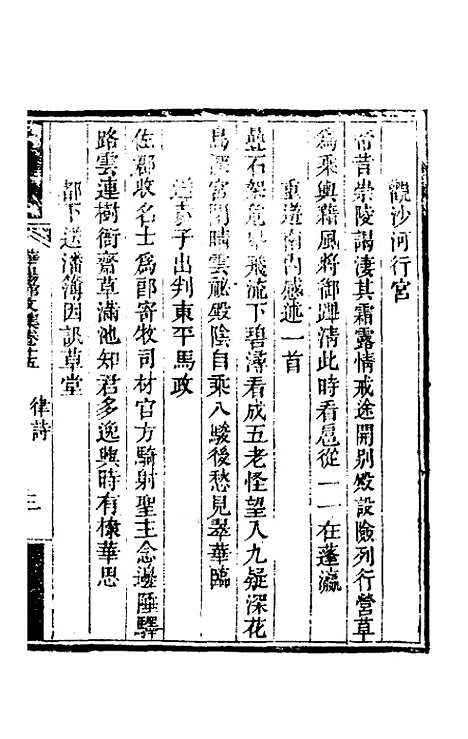 觀沙河行宮
帝昔崇陵謁淒其霜露情戒途開別殿設險列行營草
為乘輿藉風將御蹕清此時看扈從一一在蓬瀛
重遊南內感述一首
疊石架飛流下碧潯看成五老怪望入九疑深花
島深宮閉晴雲祕殿陰自乘八駿後愁見翠華臨
送子出判東平馬政
佐郡收名士為郎寄牧司材官方騎射聖主念邊陲驛
路雲連樹衙齋草滿池知君多逸興時有棣華思
都下送潘簿因訊草堂
律詩
三